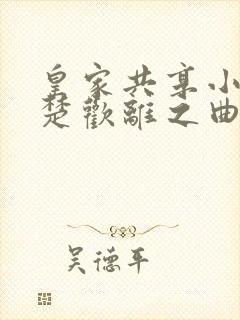 皇家共享小
楚歡離之曲
吴德平